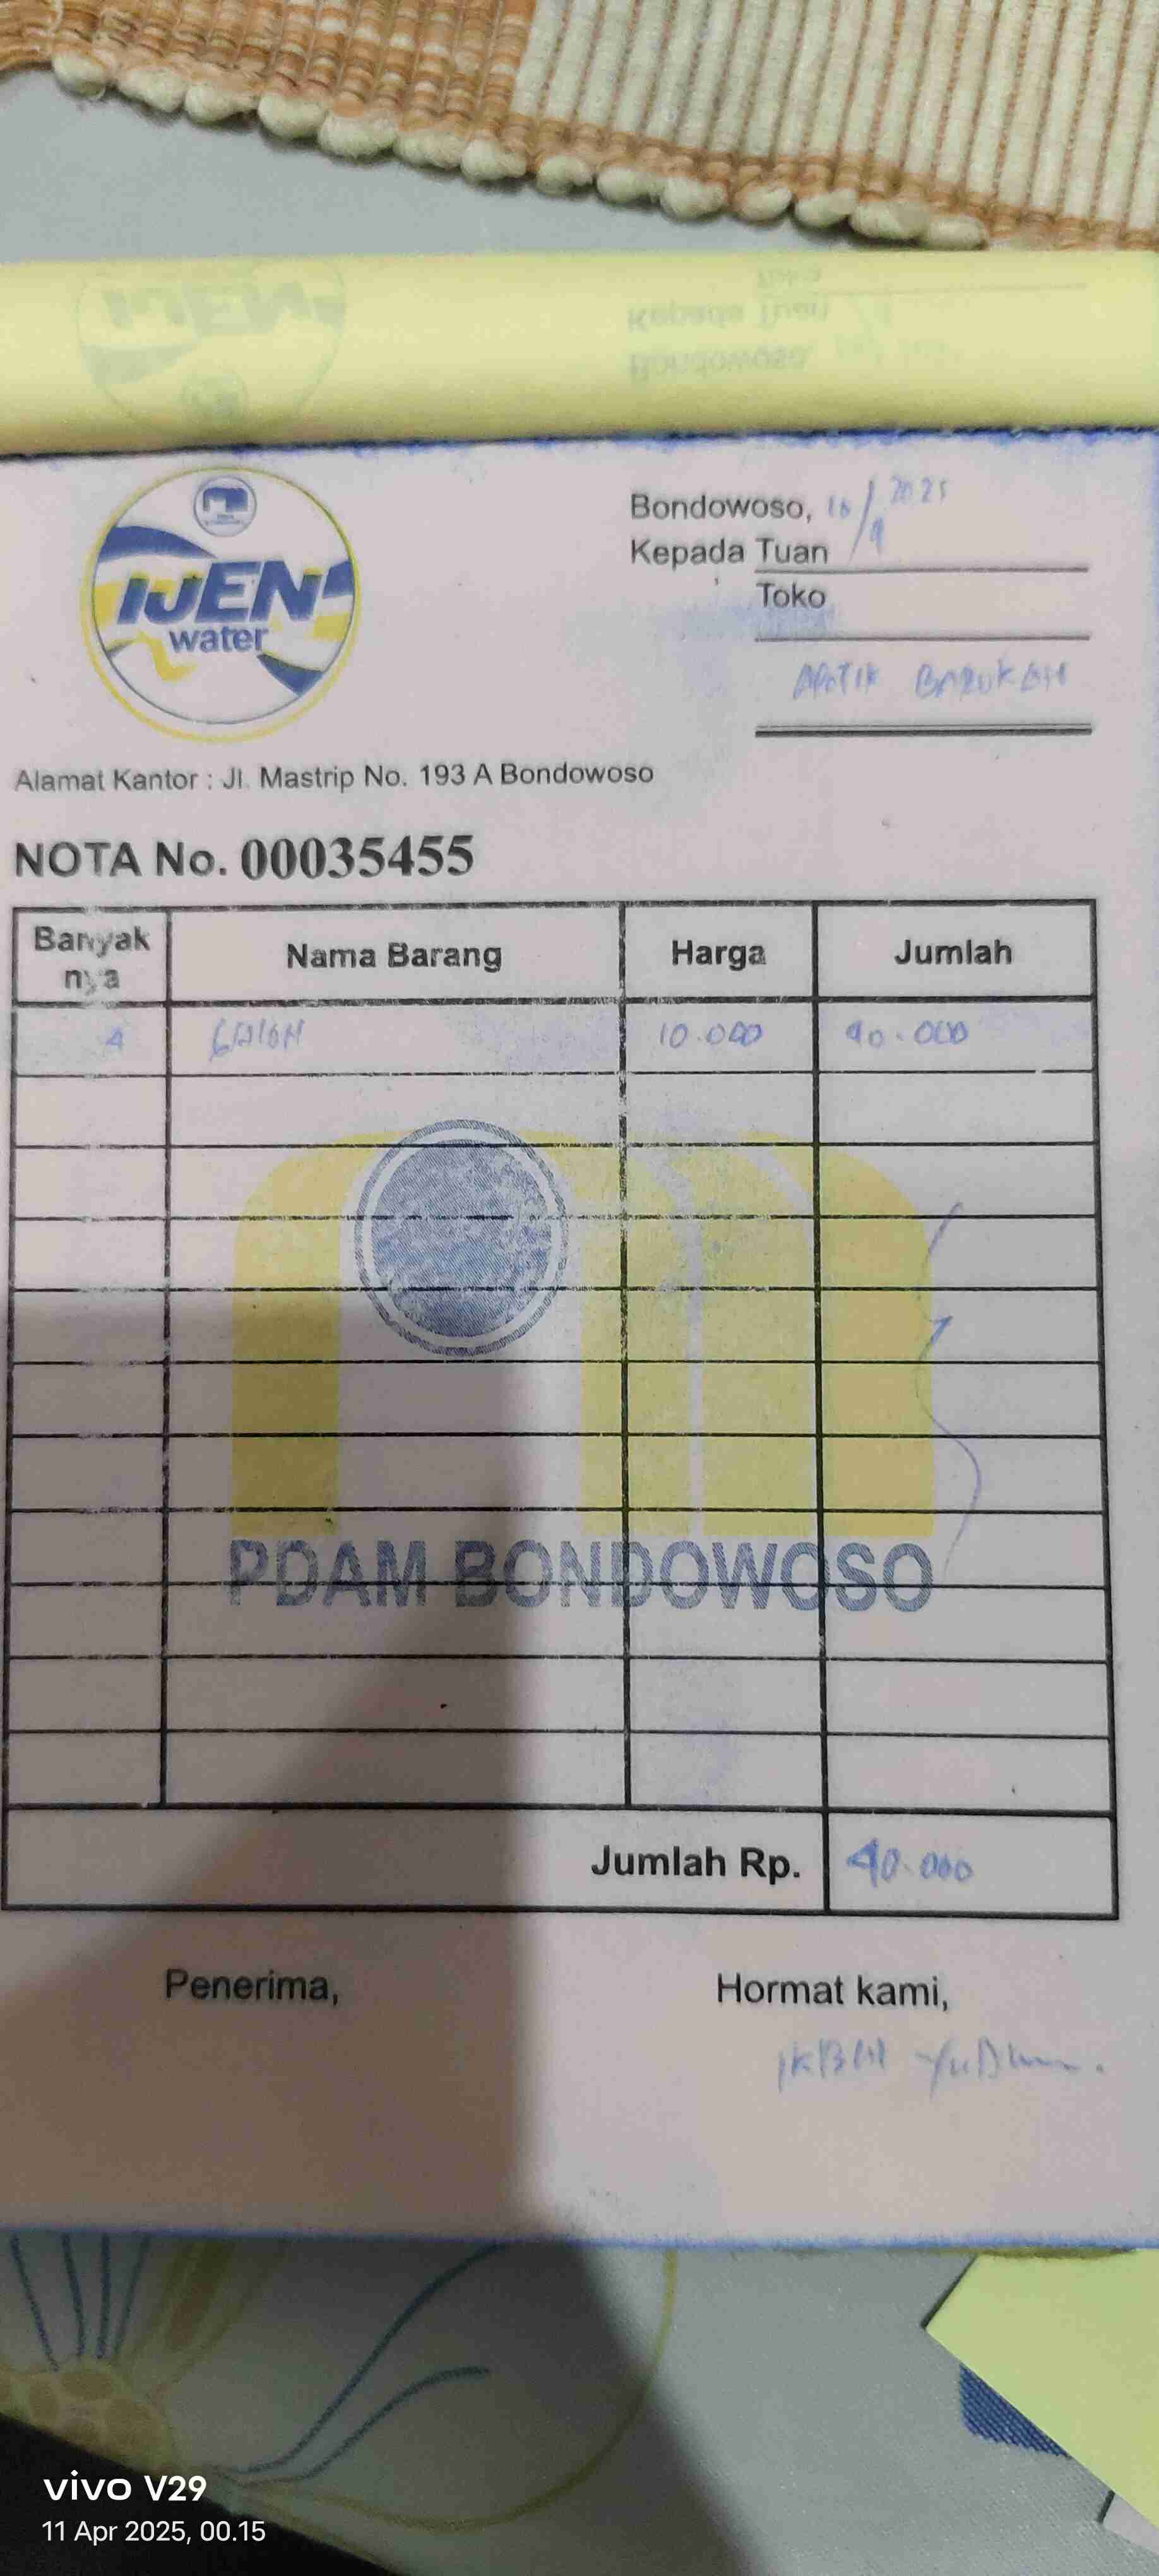 IJEN
water
Bondowoso, 10/4 2025
Kepada Tuan
Toko
APOTIK BAROKAH
Alamat Kantor : Jl. Mastrip No. 193 A Bondowoso
NOTA No. 00035455
Banyak nya Nama Barang Harga Jumlah
4 GALON 10.000 40.000
PDAM BONDOWOSO
Jumlah Rp. 40.000
Penerima, Hormat kami,
vivo V29
11 Apr 2025, 00.15